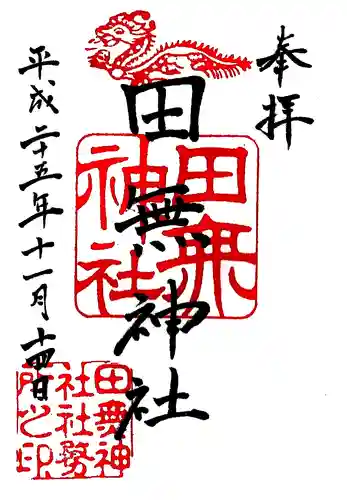 奉拝
田無神社
田無神社
平成二十五年十一月十四日
田無神
社社務
所之印